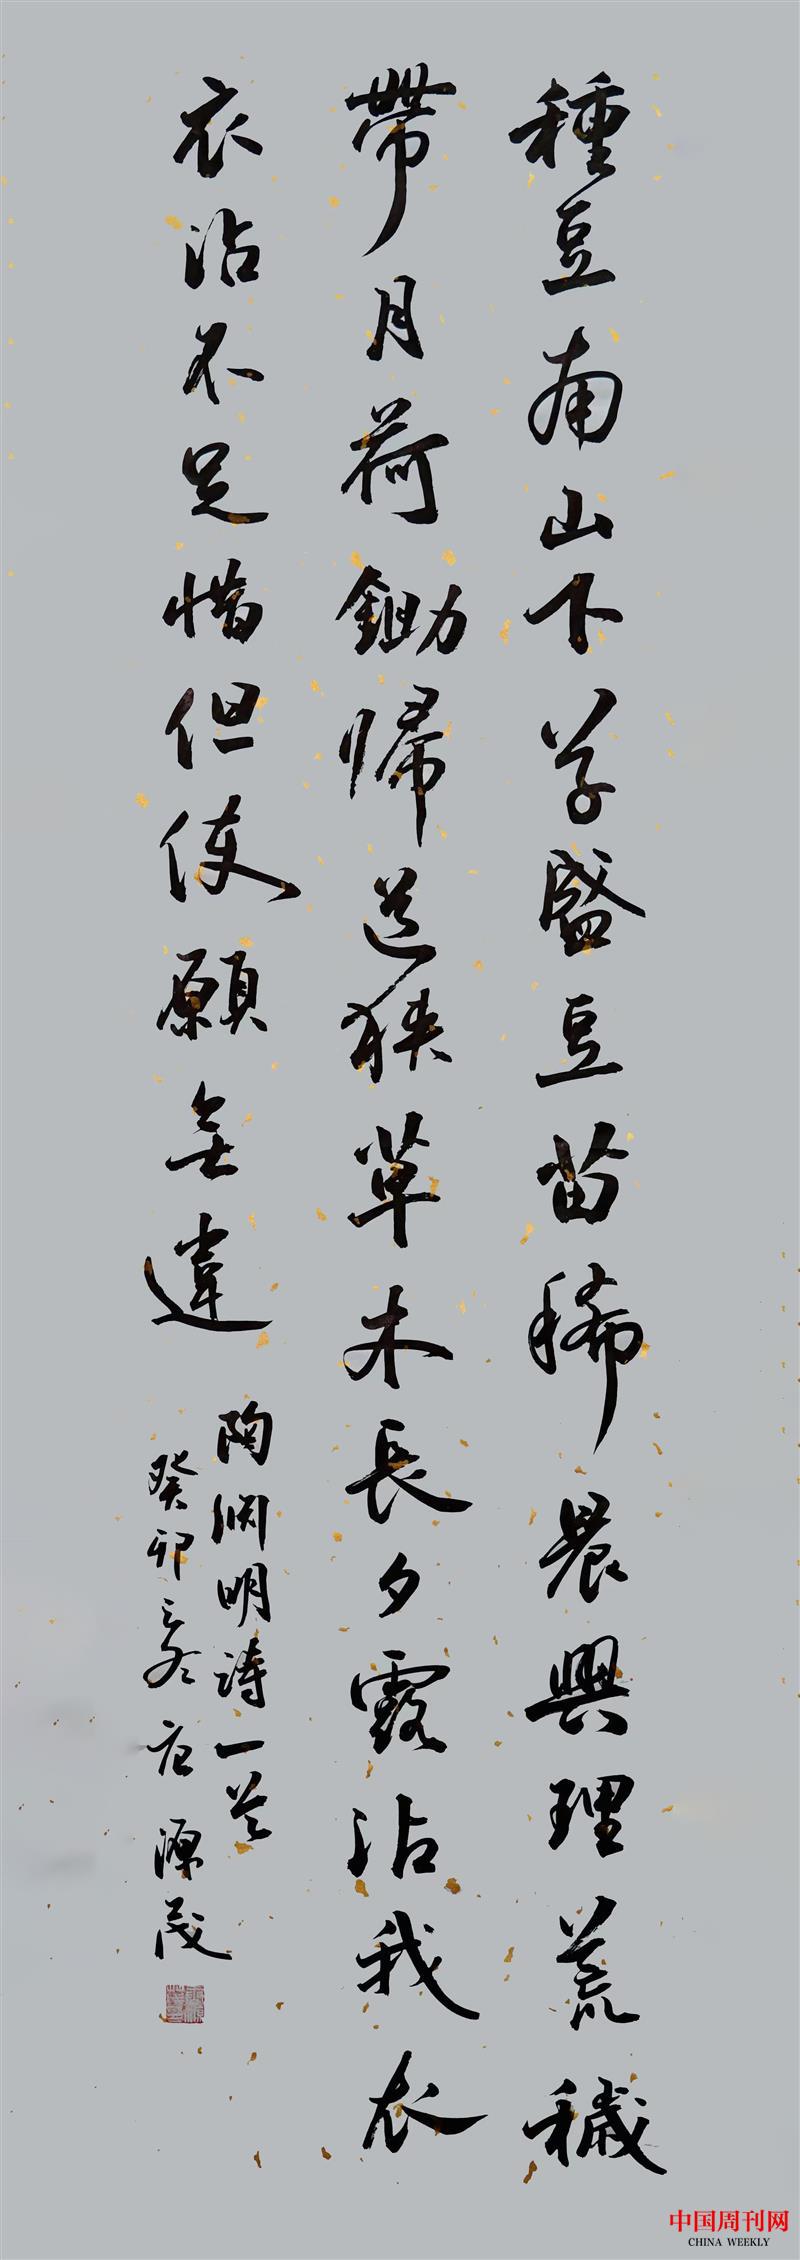 種豆南山下草盛豆苗稀晨興理荒穢
帶月荷鋤歸道狹草木長夕露沾我衣
衣沾不足惜但使願無違
陶渊明詩一首
癸卯之冬 源茂
中国周刊网
CHINA WEEKLY